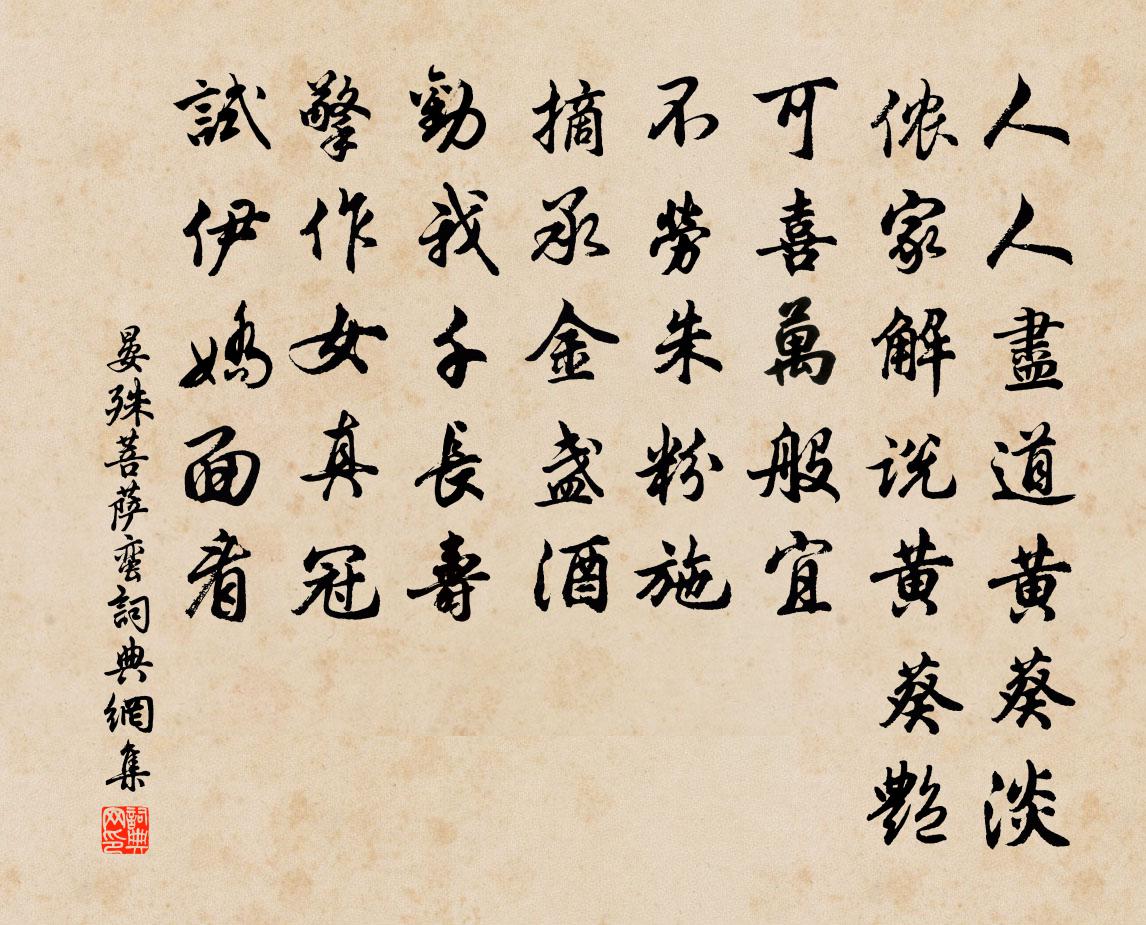 人人盡道黃葵淡
儂家解說黃葵艷
可喜萬般宜
不勞朱粉施
摘承金盞酒
勸我千長壽
擎作女真冠
試伊嬌面看
晏殊菩薩蠻詞典網集
詞典網印